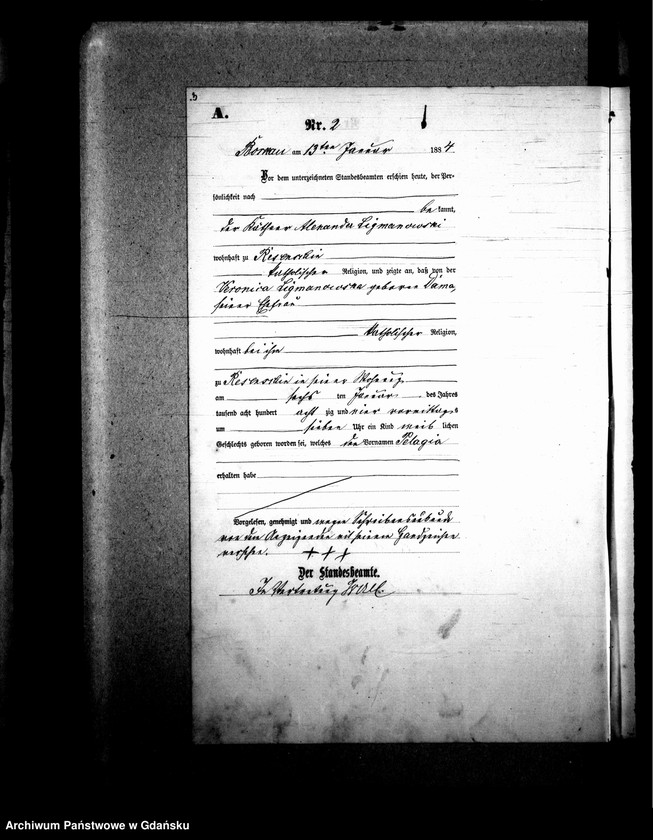 A.
Nr. 2
am 13ten Januar 1884
Vor dem unterzeichneten Standesbeamten erschien heute, der Per-
sönlichkeit nach
be kannt,
der Käthner Alexander Ligmanowski
wohnhaft zu
katholischer Religion, und zeigte an, daß von der
Veronica Ligmanowska geborene Dama,
seiner Ehefrau
katholischer Religion,
wohnhaft bei ihm
zu in seiner Wohnung
am sechs ten Januar des Jahres
tausend acht hundert acht zig und vier vormittags
um sieben Uhr ein Kind weib lichen
Geschlechts geboren worden sei, welches den Vornamen Pelagia
erhalten habe
Vorgelesen, genehmigt und wegen Schreibensunkunde
von dem Anzeigenden mit seinem Handzeichen
versehen. + + +
Der Standesbeamte.
In Vertretung
Archiwum Państwowe w Gdańsku